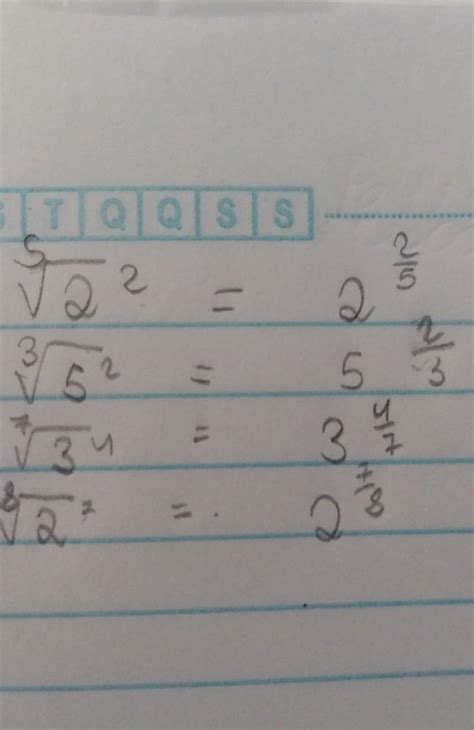 S T Q Q S S
⁵√2² = 2^(2/5)
³√5² = 5^(2/3)
⁷√3⁴ = 3^(4/7)
⁸√2⁷ = 2^(7/8)